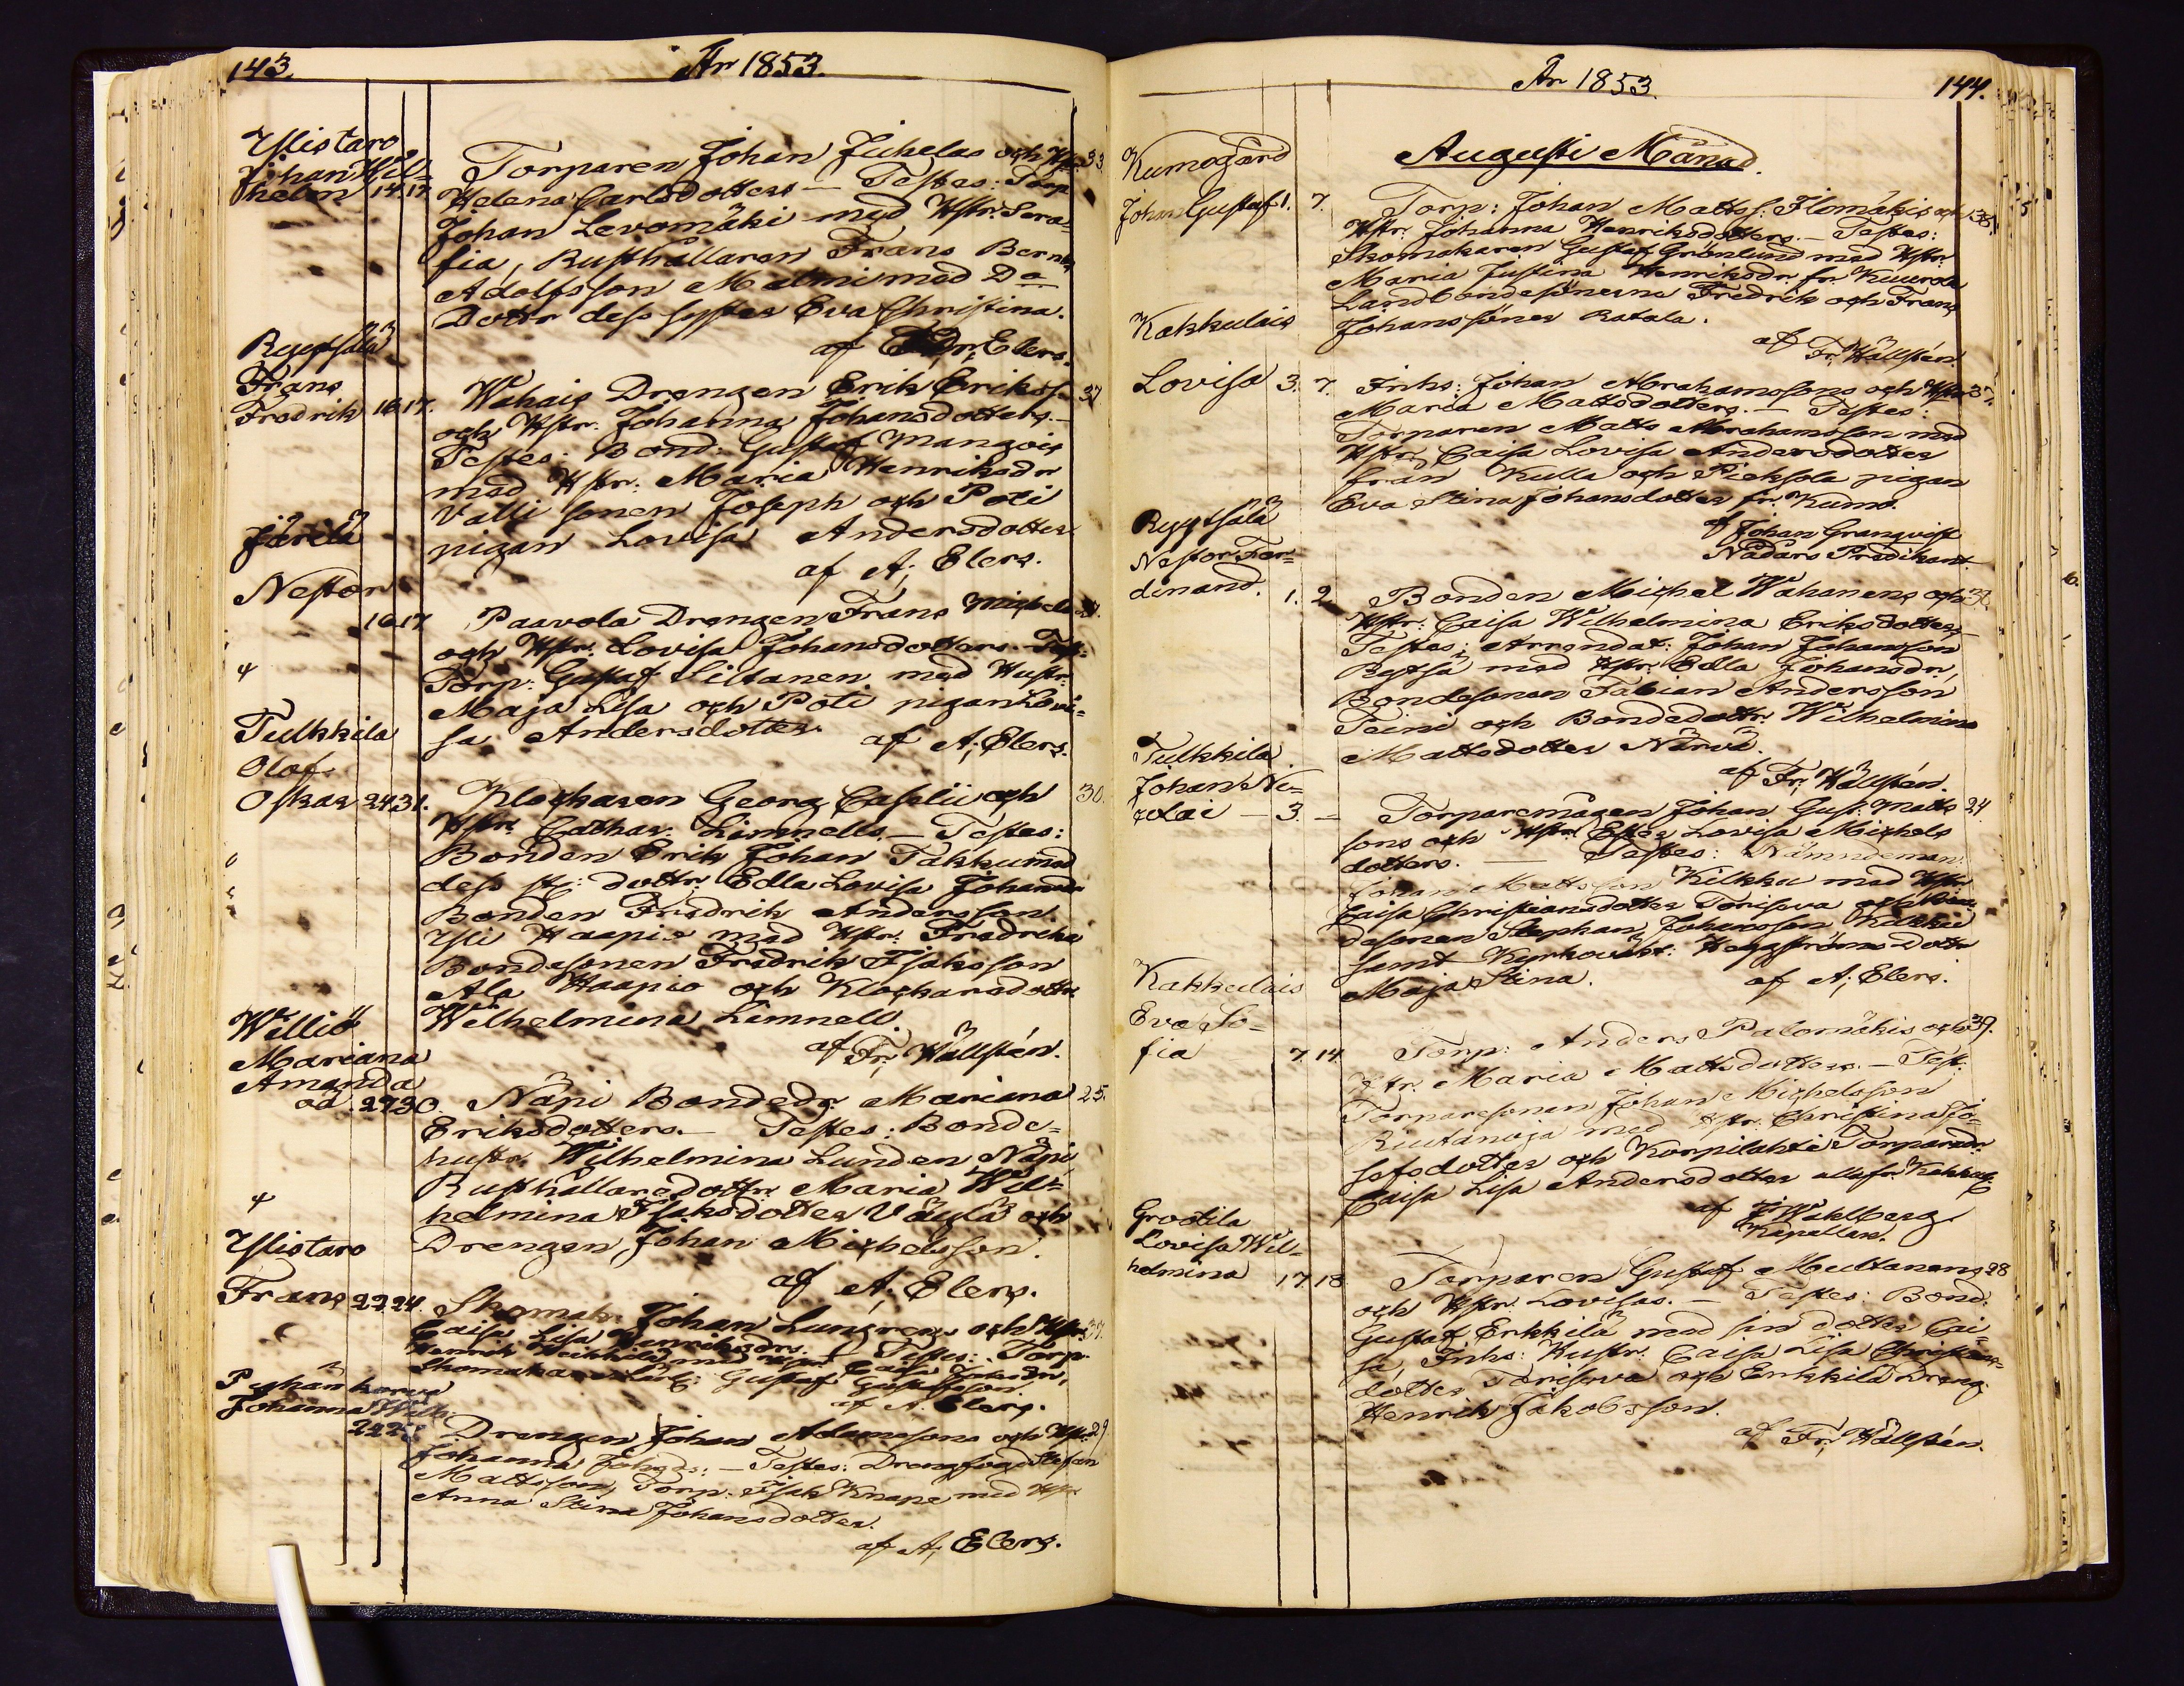 143.
År 1853.
Ylistaro
Johan Wil=
helm 14. 17.
Torparen Johan Juhelas och Hstr. 33
Helena Carlsdotters — Testes: Torp.
Johan Levomäki med Hstr. Sera=
fia, Rusthållaren Frans Bernh.
Adolfsson Malmi med Da
Dottr dess syster Eva Christina.
af Elers.
Ryytsälä
Frans
Fredrik 16. 17.
Wahais Drengen Erik Erikss. 37
och Hstr. Johanna Johansdotters. —
Testes: Bond: Gustaf Mangois
med Hstr. Maria Henriksdr
Valli sonen Joseph och Poti
pigan Lovisa Andersdotter
af A; Elers.
Järilä
Nestor
16. 17
Paavola Drengen Frans Michels
och Hstr. Lovisa Johansdotters. Test:
Torp: Gustaf Siltanen med Hustr:
Maja Lisa och Poti pigan Lovi=
sa Andersdotter.
af A; Elers.
Tulkkila
Olof
Oskar 24. 31.
Klockaren Georg Caselii och 30.
Hstr. Cathar: Limnells. — Testes:
Bonden Erik Johan Takku med
dess st: dottr. Edla Lovisa Johansdr
Bonden Fredrik Andersson
Yli Haapio med Hstr. Fredrika
Bondesonen Fredrik Isaksson
Ala Haapio och Klockaredottr.
Wilhelmina Limnell.
af Fr; Wållstén.
Williö
Mariana
Amanda
oä. 29 30.
Näpi Bondedr. Mariana 25.
Eriksdotters. — Testes: Bonde=
hustr. Wilhelmina Lunden Näpi
Rusthållaredottr. Maria Wil=
helmina Isaksdotter Väylä och
Drengen Johan Michelsson.
af A; Elers.
Ylistaro
Frans 22. 24.
Skomak. Johan Lungrens och Hstr. 37.
Caisa Lisa Henriksdrs. Testes: Torp.
Henrik Heikkilä med Hstr. Caisa
Skomakare Gustaf Gustafsson.
af A. Elers.
Pyhänkorva
Johanna Wilh:
24 28
Drengen Johan Adamssons och Hstr. 29
Johanna — Testes: Drengfogd Stefan
Mattsson, Torp. Isak Knape med Hstr
Anna Stina Johansdotter.
af A; Elers.
År 1853.
144.
Augusti Månad.
Kumogård
Johan Gustaf 1. 7.
Torp: Johan Mattss: Ilomäkis och 38.
Hstr. Johanna Henriksdotters. — Testes:
Skomakaren Gustaf Grönlund med Hstr.
Maria Justina Henriksdr. fr. Kuurola
Landbondesönerna Fredrik och Frans
Johanssöner Ratala.
af Fr; Wållstén.
Kakkulais
Lovisa 3. 7.
Inhs: Johan Abrahamssons och Hstr. 37.
Maria Mattsdotters. — Testes:
Torparen Matts Abrahamsson med
Hstr. Caisa Lovisa Andersdotter
från Kulla och Pieksola pigan
Eva Stina Johansdotter fr. Kumo.
af Johan Granqvist
Nådårs Predikant
Ryytsälä
Nestor Fer=
dinand. 1. 2.
Bonden Michel Wahanens och 32
Hstr. Caisa Wilhelmina Eriksdotters. —
Testes: Arrendat: Johan Johansson
Rytsä med Hstr. Edla Johansdr,
Bondesonen Fabian Andersson
Peini och Bondedottr. Wilhelmina
Mattsdotter Närvä.
af Fr; Wållstén.
Tulkkila.
Johan Ni=
colai — 3. —
Torparemågen Johan Gust: Matts 24
sons och Hstr. Ester Lovisa Michels
dotters. — Testes: Nämndeman
Johan Mattsson Kilkku med Hstr
Caisa Christiansdotter Torisewa och
desonen Stephan Johansson Kukkai
samt Kyrkovakt: Heggströms dottr
Maja Stina.
af A; Elers.
Kakkulais
Eva So=
fia 7. 14.
Torp: Anders Palomäkis och 39.
Hstr. Maria Mattsdotters. — Test:
Torparesonen Johan Michelsson
Riutanoja med Hstr. Christina Jo=
sefsdotter och Korpilahti Torparedr
Caisa Lisa Andersdotter alla fr. Kakkul:
af Fr Wahlberg
Kapellan.
Grootila
Lovisa Wil=
helmina 17 18
Torparen Gustaf Multanens 28
och Hstr. Lovisas. — Testes: Bond:
Gustaf Erkkilä med sin dotter Cai=
sa, Inhs: Hustr. Caisa Lisa Christians=
dotter Toriseva och Erkkilä Dreng.
Henrik Jakobsson.
af Fr; Wållstén.